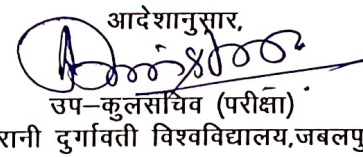 आदेशानुसार,
उप–कुलसचिव (परीक्षा)
रानी दुर्गावती विश्वविद्यालय,जबलपु